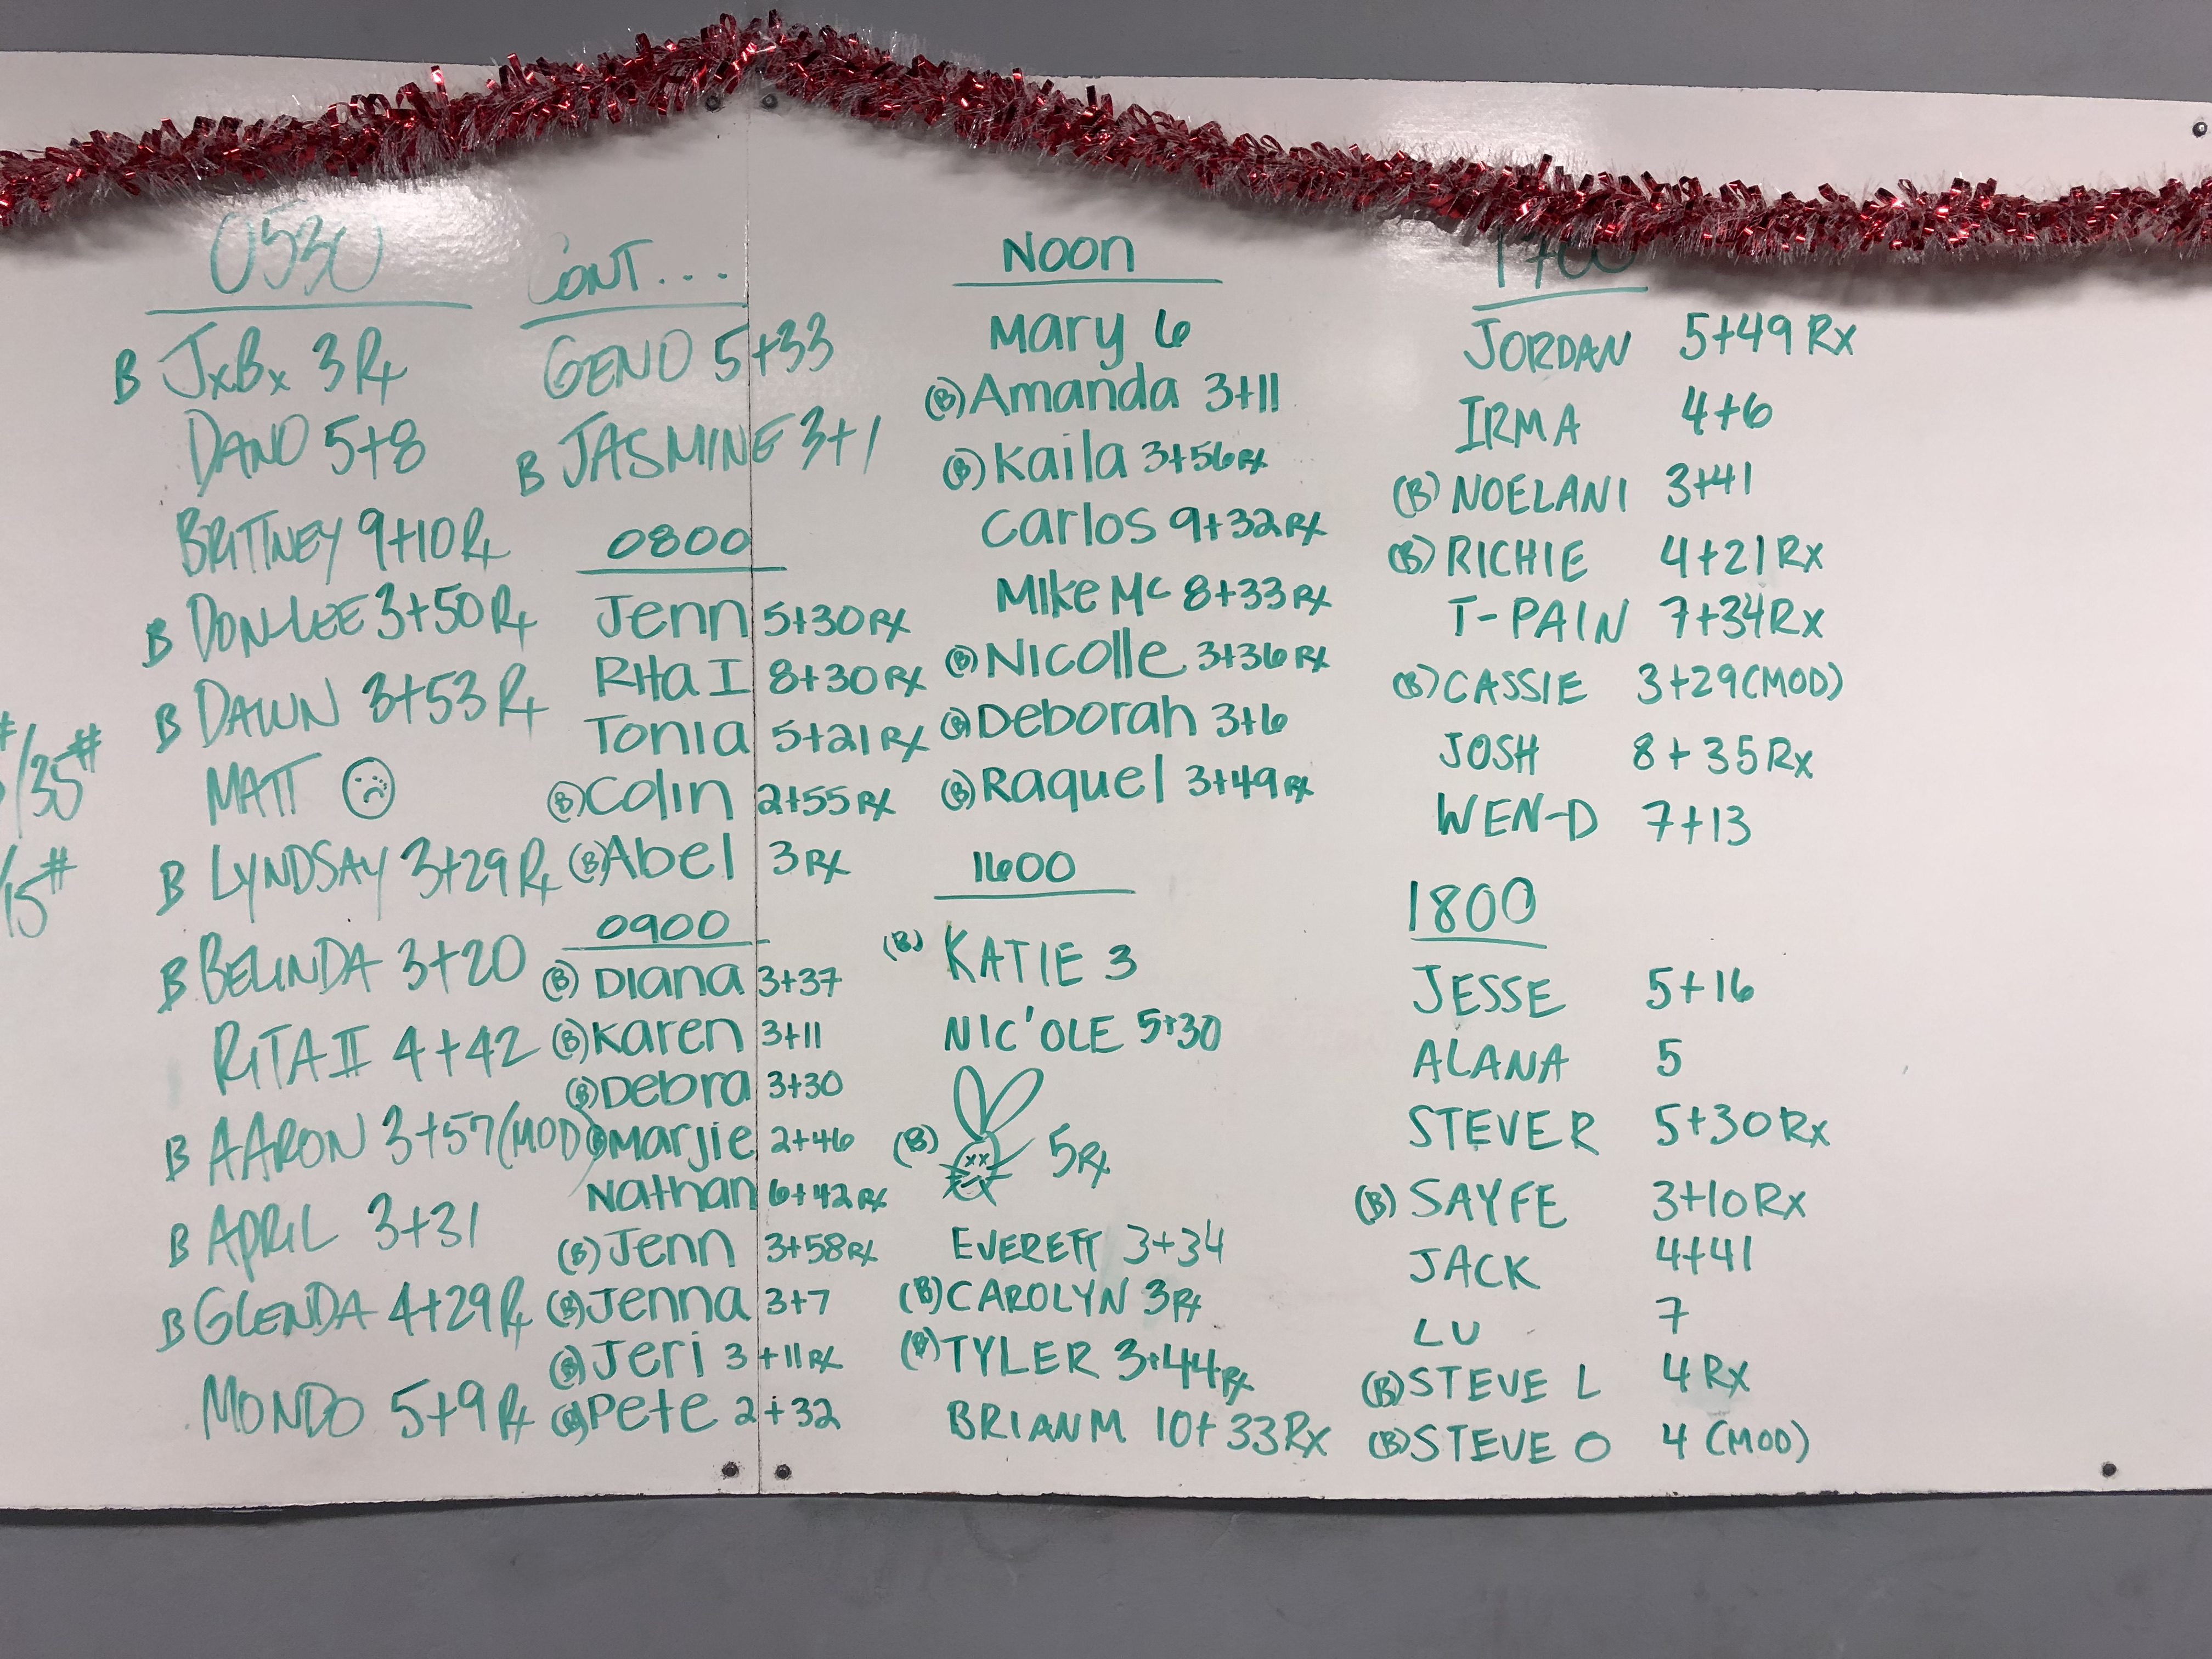 0530
B JxBx 3 Rx
DANO 5+8
BRITTNEY 9+10 Rx
B DON-LEE 3+50 Rx
B DAWN 3+53 Rx
MATT
B LYNDSAY 3+29 Rx
B BELINDA 3+20
RITA II 4+42
B AARON 3+57 (MOD)
B APRIL 3+31
B GLENDA 4+29 Rx
MONDO 5+9 Rx
#/35#
/15#
CONT...
GENO 5+33
B JASMINE 3+1
0800
Jenn 5+30 Rx
Rita I 8+30 Rx
Tonia 5+21 Rx
(B) Colin 2+55 Rx
(B) Abel 3 Rx
0900
(B) Diana 3+37
(B) Karen 3+11
(B) Debra 3+30
(B) Marjie 2+46
Nathan 6+42 Rx
(B) Jenn 3+58 Rx
(B) Jenna 3+7
(B) Jeri 3+11 Rx
(B) Pete 2+32
NOON
Mary 6
(B) Amanda 3+11
(B) Kaila 3+56 Rx
Carlos 9+32 Rx
Mike Mc 8+33 Rx
(B) Nicolle 3+36 Rx
(B) Deborah 3+6
(B) Raquel 3+49 Rx
1600
(B) KATIE 3
NIC'OLE 5+30
(B) 5 Rx
EVERETT 3+34
(B) CAROLYN 3 Rx
(B) TYLER 3+44 Rx
BRIAN M 10+33 Rx
1700
JORDAN 5+49 Rx
IRMA 4+6
(B) NOELANI 3+41
(B) RICHIE 4+21 Rx
T-PAIN 7+34 Rx
(B) CASSIE 3+29 (MOD)
JOSH 8+35 Rx
WEN-D 7+13
1800
JESSE 5+16
ALANA 5
STEVE R 5+30 Rx
(B) SAYFE 3+10 Rx
JACK 4+41
LU 7
(B) STEVE L 4 Rx
(B) STEVE O 4 (MOD)